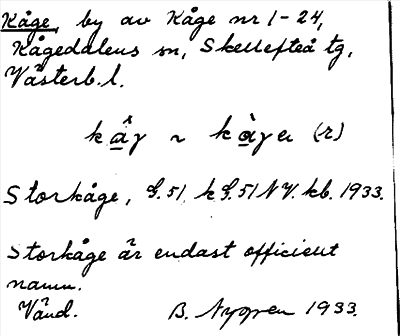 Kåge, by av Kåge nr 1-24,
Kågedalens sn, Skellefteå tg,
Västerb. l.
kåγ ~ kàγen (r)
Storkåge, G.51, k G.51 NV. kb. 1933.
Storkåge är endast officiellt
namn.
Vänd. B. Nygren 1933.